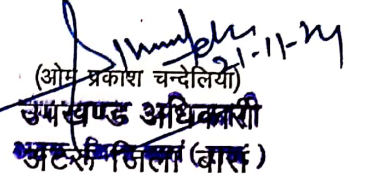 21-11-24
(ओम प्रकाश चन्देलिया)
उपखण्ड अधिकारी
अटरू जिला (बारां)